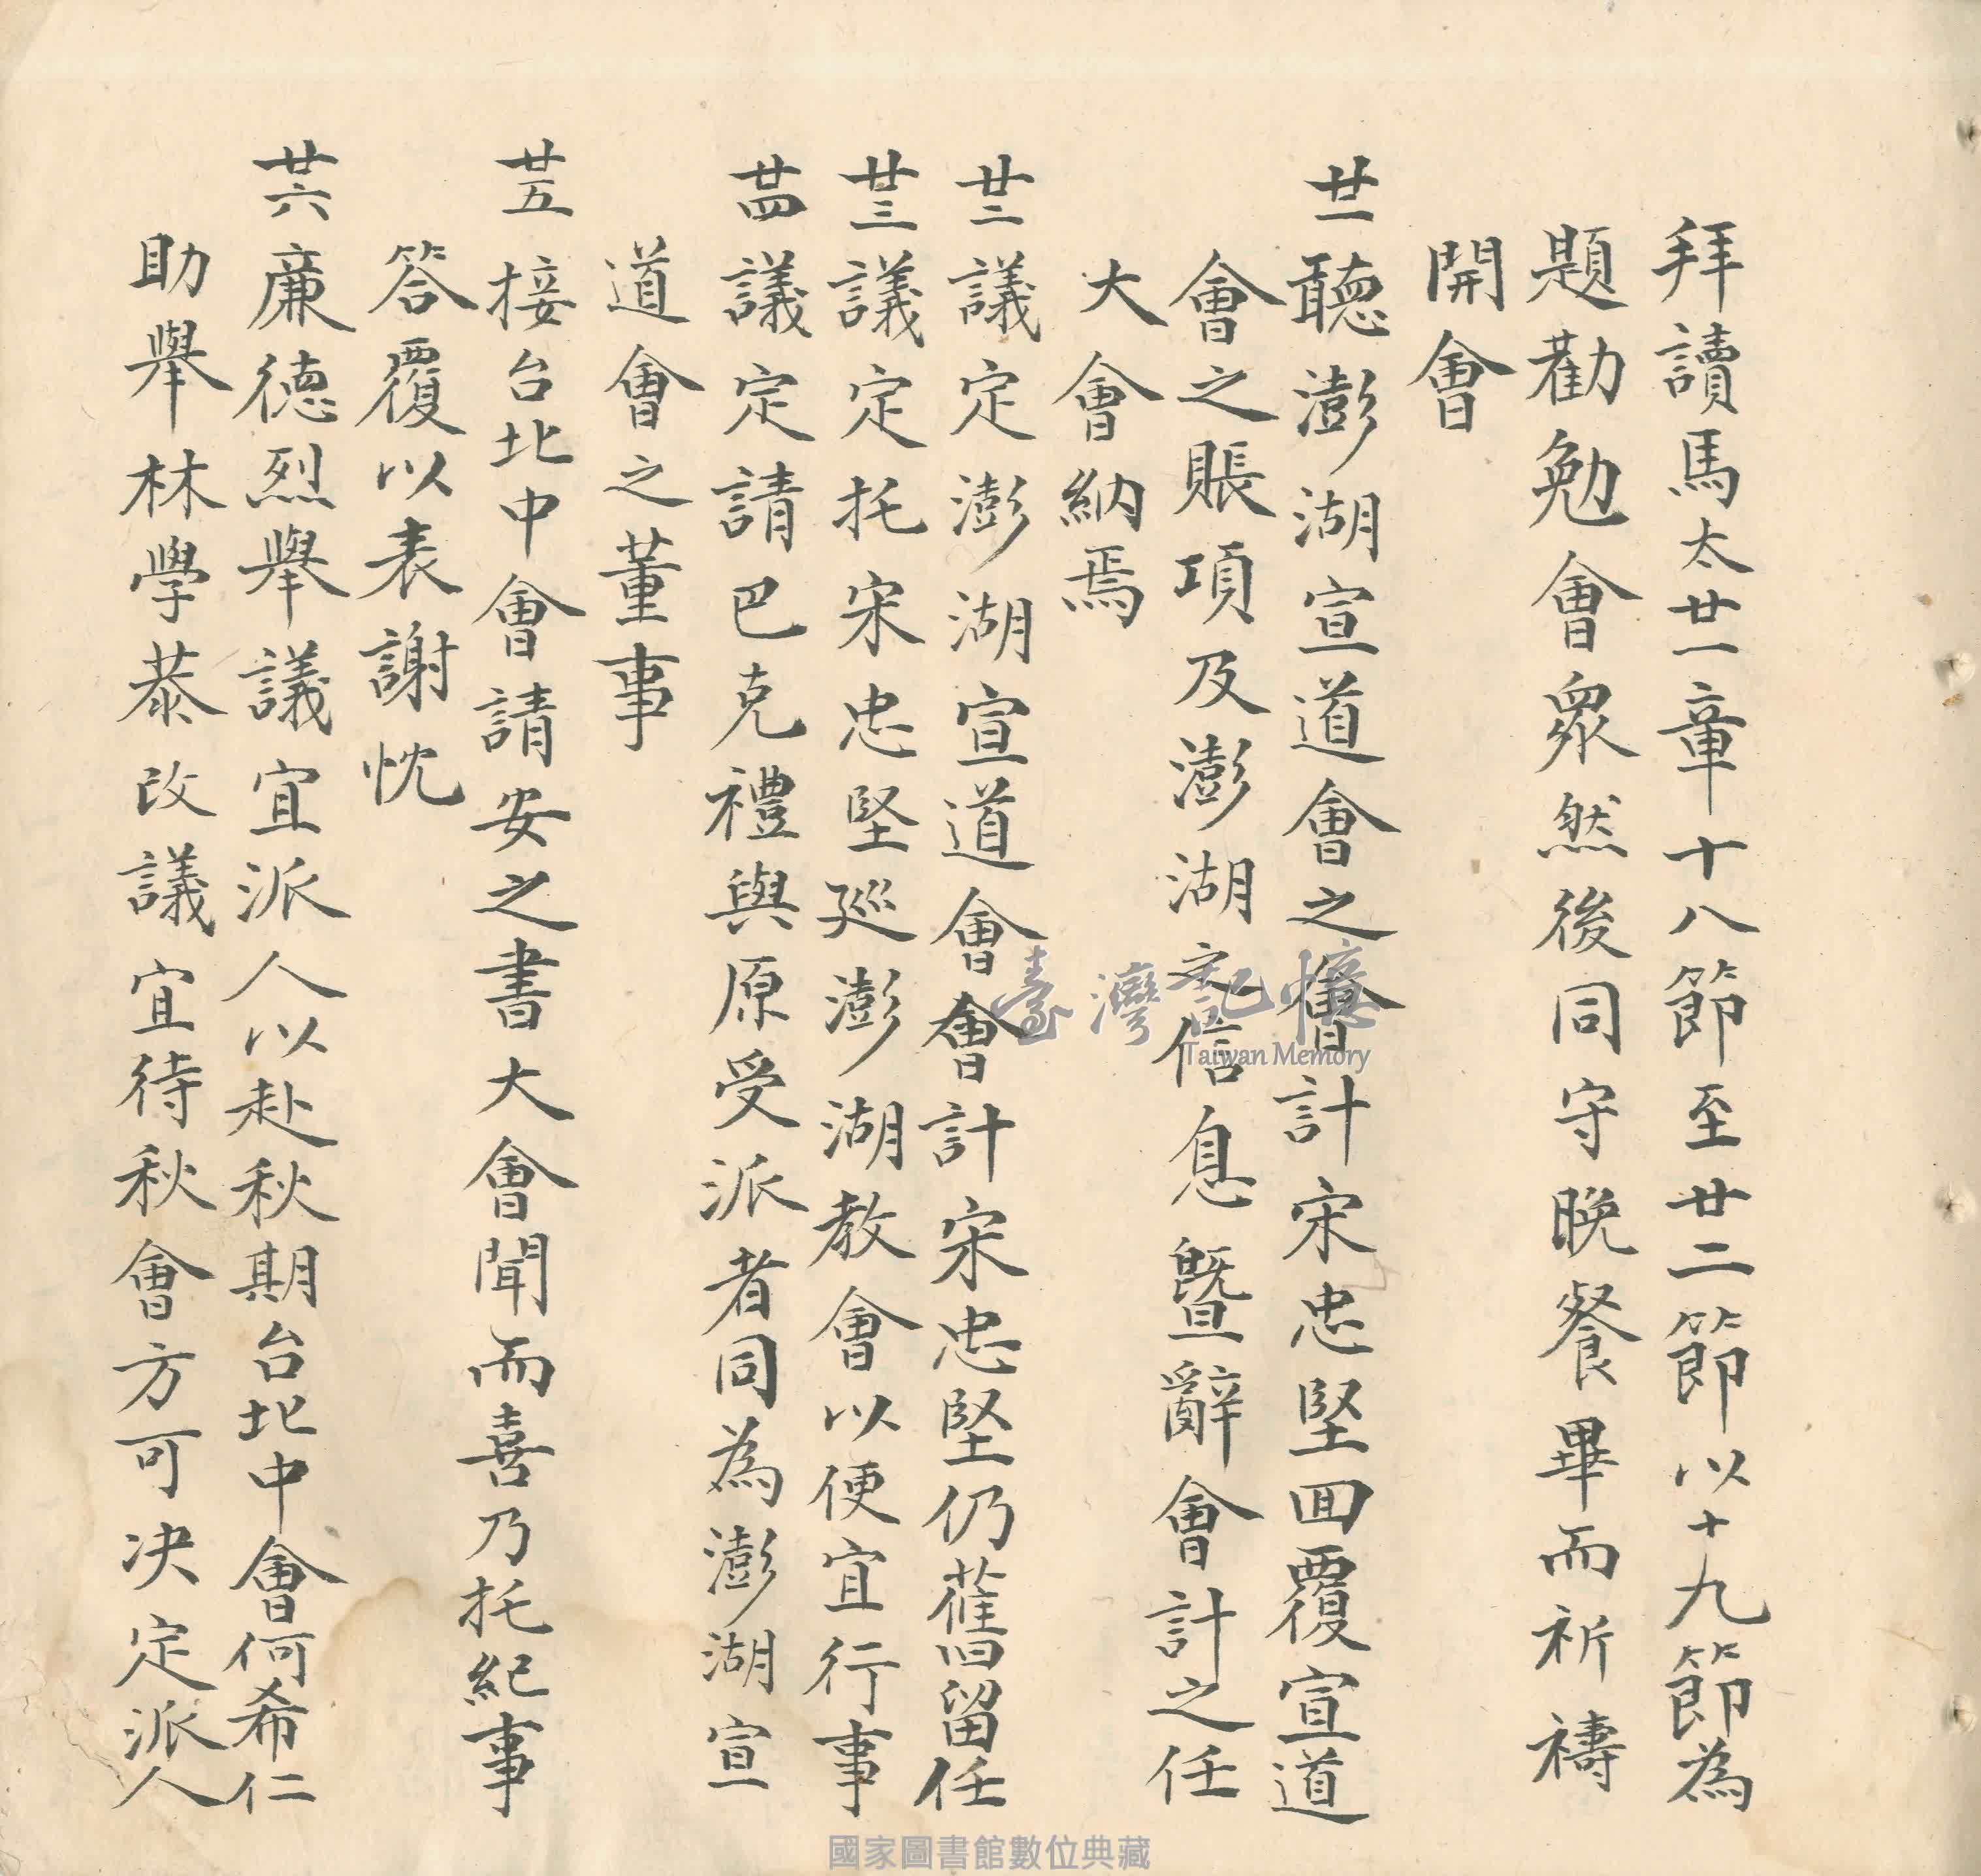 拜讀馬太廿一章十八節至廿二節以十九節為
題勸勉會眾然後同守晚餐畢而祈禱
開會
廿一聽澎湖宣道會之會計宋忠堅回覆宣道
會之賬項及澎湖之信息暨辭會計之任
大會納焉
廿二議定澎湖宣道會會計宋忠堅仍舊留任
廿三議定托宋忠堅廵澎湖教會以便宜行事
廿四議定請巴克禮與原受派者同為澎湖宣
道會之董事
廿五接台北中會請安之書大會聞而喜乃托紀事
答覆以表謝忱
廿六廉德烈舉議宜派人以赴秋期台北中會何希仁
助舉林學恭改議宜待秋會方可決定派人
臺灣記憶
Taiwan Memory
國家圖書館數位典藏